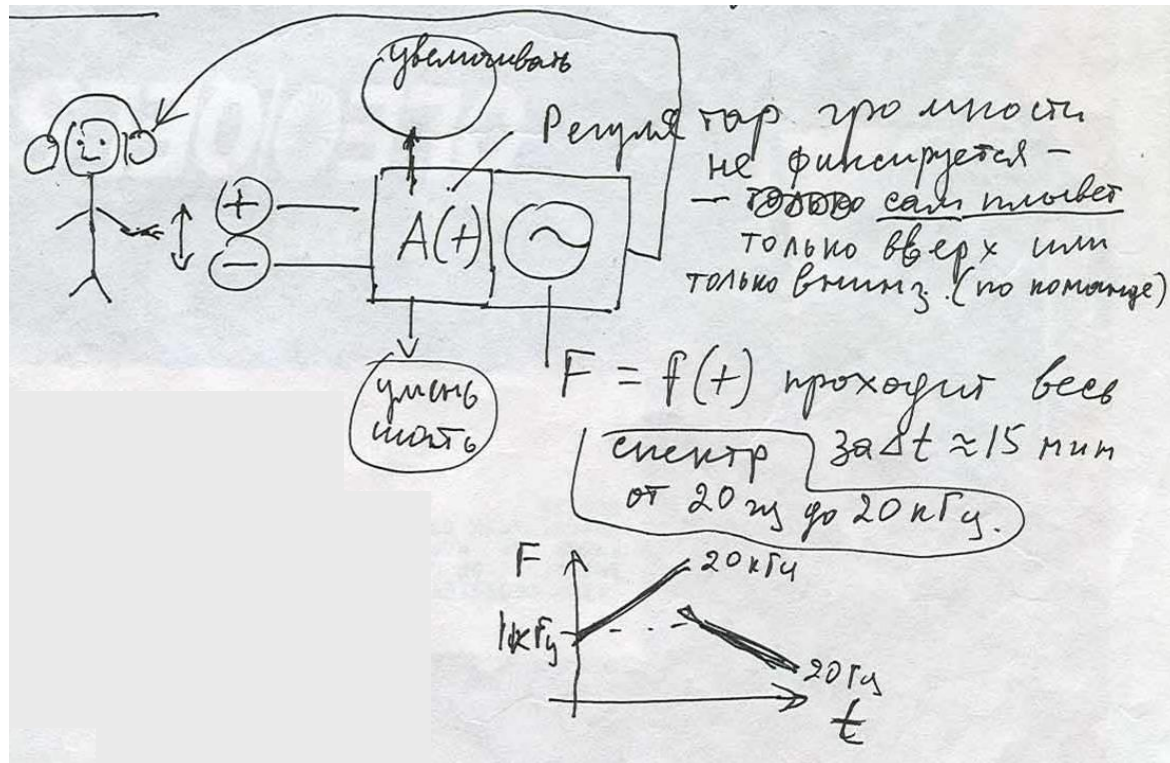 увеличивать
Регулятор громкости
не фиксируется -
- сам плывет
только вверх или
только вниз. (по команде)
+
-
A(t)
~
умень
шать
F = f(t) проходит весь
спектр за Δt ≈ 15 мин
от 20 гц до 20 кГц.
F
20 кГц
1 кГц
20 Гц
t